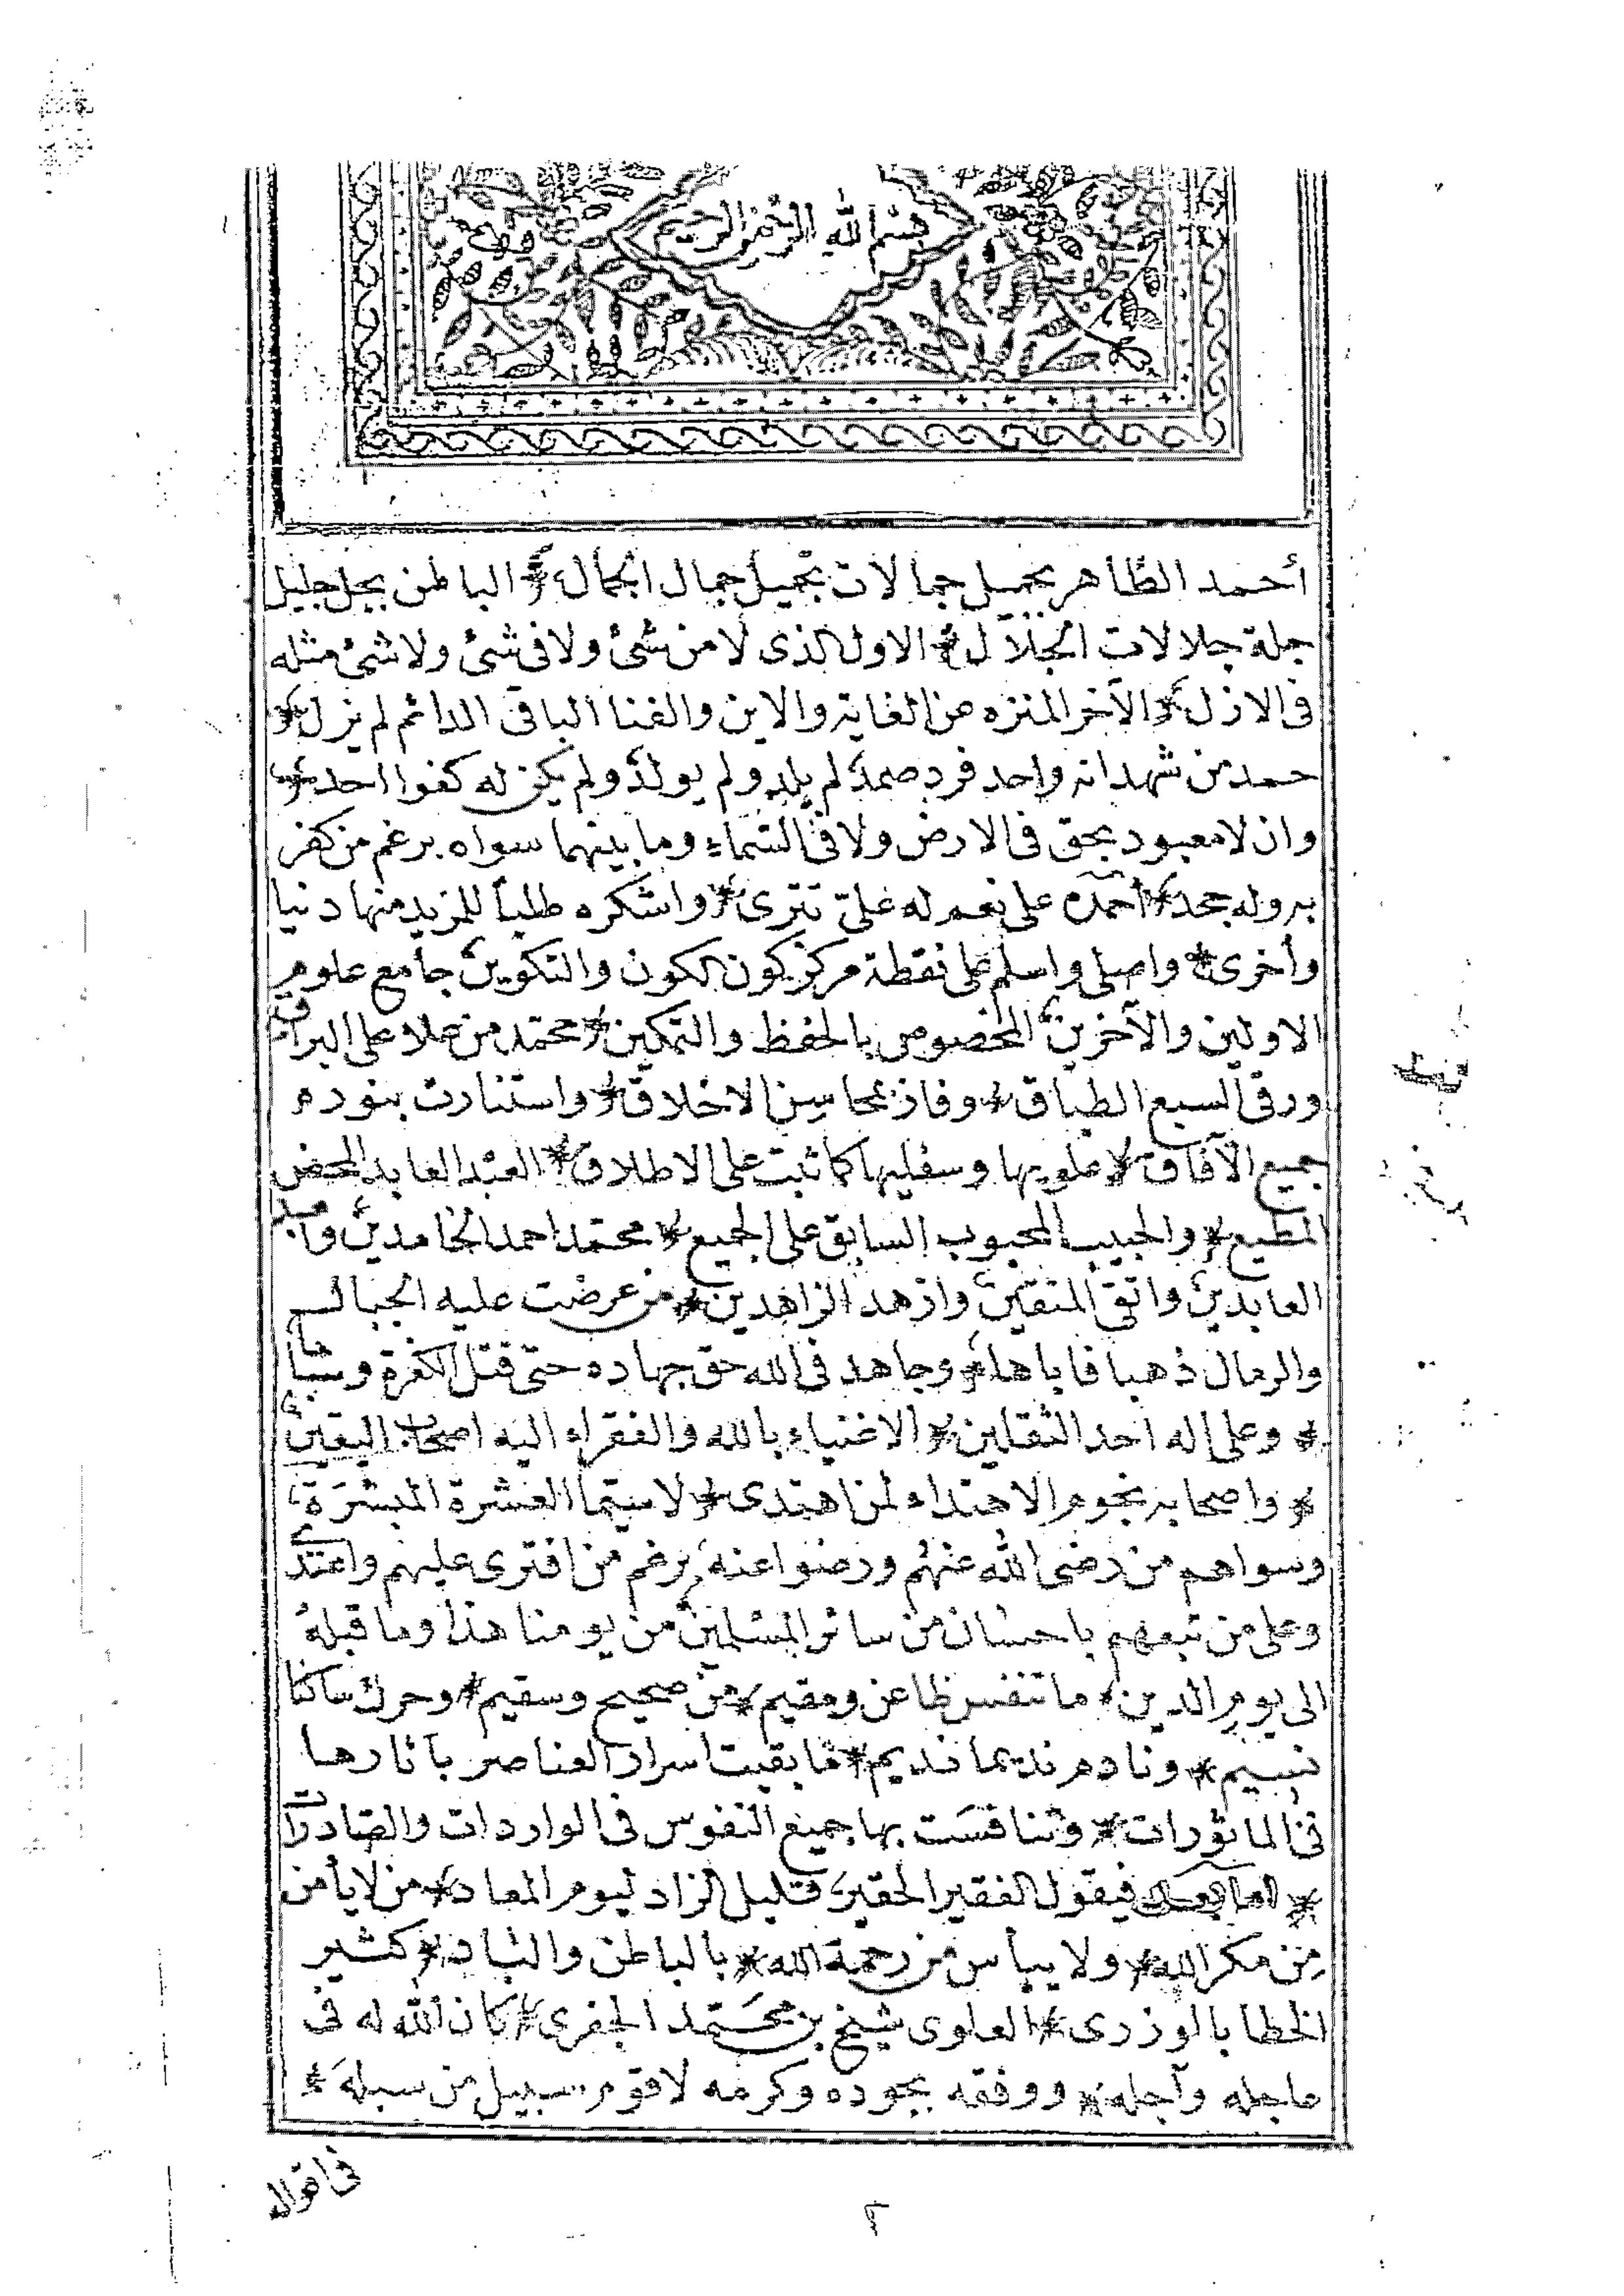 بسم الله الرحمن الرحيم
أحمد الظاهر بجميل جمالات تجميل جمال الجمال * الباطن بجل جليل
جملة جلالات الجلال * الاول الذى لا من شئ ولا فى شئ ولا شئ مثله
فى الازل * الآخر المنزه عن الغاية والاين والفنا الباقى الدائم لم يزل *
حمد من شهد انه واحد فرد صمد لم يلد ولم يولد ولم يكن له كفوا احد *
وان لا معبود بحق فى الارض ولا فى السماء وما بينهما سواه برغم من كفر
به وله جحد * أحمده على نعم له علىّ تترى * واشكره طلبا للمزيد منها دنيا
وأخرى * واصلى واسلم على نقطة مركز كون الكون والتكوين جامع علوم
الاولين والآخرين المخصوص بالحفظ والتمكين * محمد من علا على البراق
ورقى السبع الطباق * وفاز بمحاسن الاخلاق * واستنارت بنوره
جميع الآفاق * علويها وسفليها كما ثبت على الاطلاق * العبد العابد المحض
المطيع * والحبيب المحبوب السابق على الجميع * محمد احمد الحامدين وأعبد
العابدين واتقى المتقين وازهد الزاهدين * من عرضت عليه الجبال
والرمال ذهبا فاباها * وجاهد فى الله حق جهاده حتى قتل الكفرة
* وعلى اله احد الثقلين * الاغنياء بالله والفقراء اليه اصحاب اليقين
* واصحابه نجوم الاهتداء لمن اهتدى * لا سيما العشرة المبشرة
وسواهم من رضى الله عنهم ورضوا عنه برغم من افترى عليهم واعتدى
وعلى من تبعهم باحسان من سائر المسلمين من يومنا هذا وما قبله
الى يوم الدين * ما تنفس ظاعن ومقيم * من صحيح وسقيم * وحرك ساكنا
نسيم * ونادم نديما نديم * ما بقيت اسرار العناصر بآثارها
فى المأثورات * وتنافست بها جميع النفوس فى الواردات والصادرات
* اما بعد فيقول الفقير الحقير قليل الزاد ليوم المعاد * من لا يأمن
من مكر الله * ولا ييأس من رحمة الله * بالباطن والباد * كثير
الخطا بالوزرى * العلوى شيخ بن محمد الجفرى * كان الله له فى
عاجله وآجله * ووفقه بجوده وكرمه لاقوم سبيل من سبله *
فى اقواله
٢